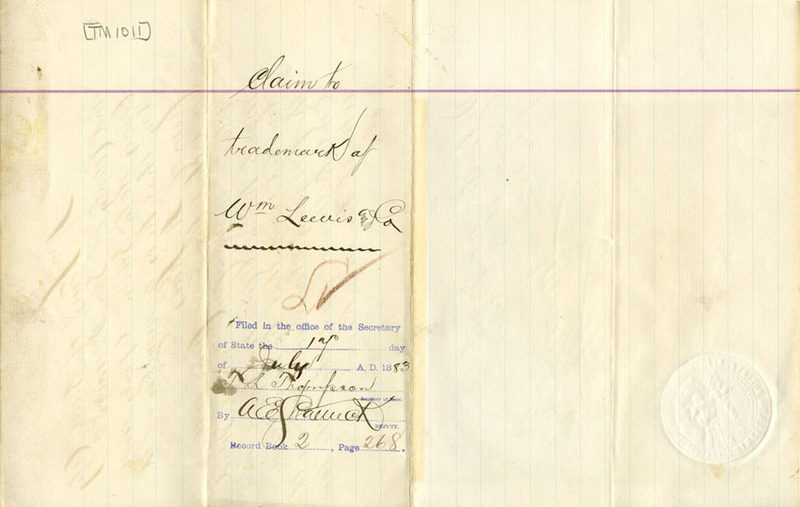 [TM1011]
Claim to
trademark of
Wm Lewis & Co
Filed in the office of the Secretary
of State the 17 day
of July A. D. 1883
T L Thompson
Secretary of State.
By A E
DEPUTY.
Record Book 2, Page 268.